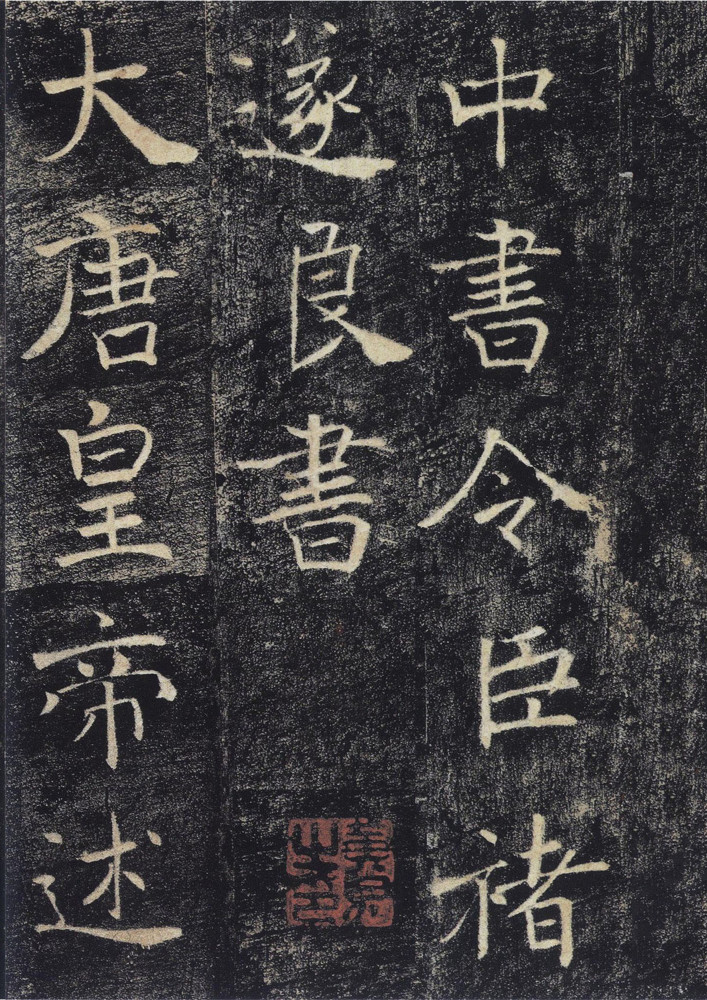 中書令臣褚
遂良書
大唐皇帝述